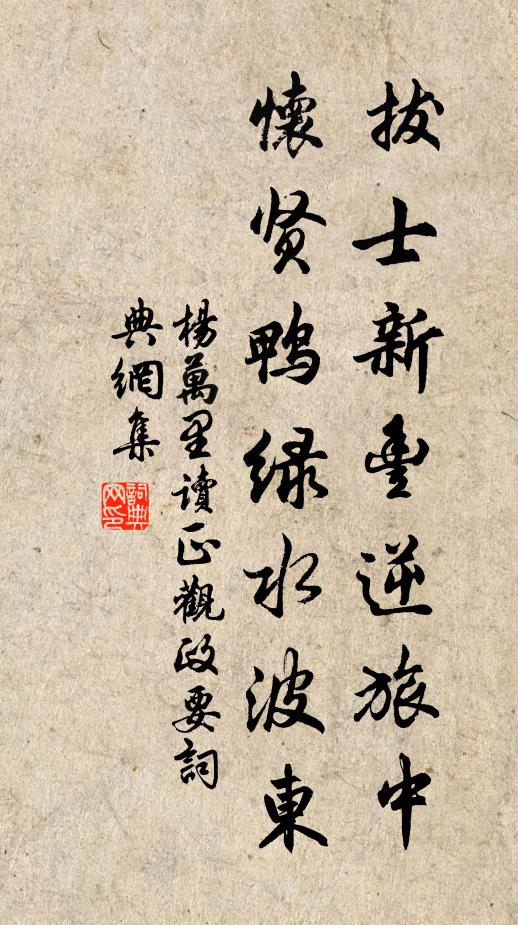 拔士新豐逆旅中
懷贤鴨緑水波東
楊萬里讀正觀政要詞
典網集
詞典網印